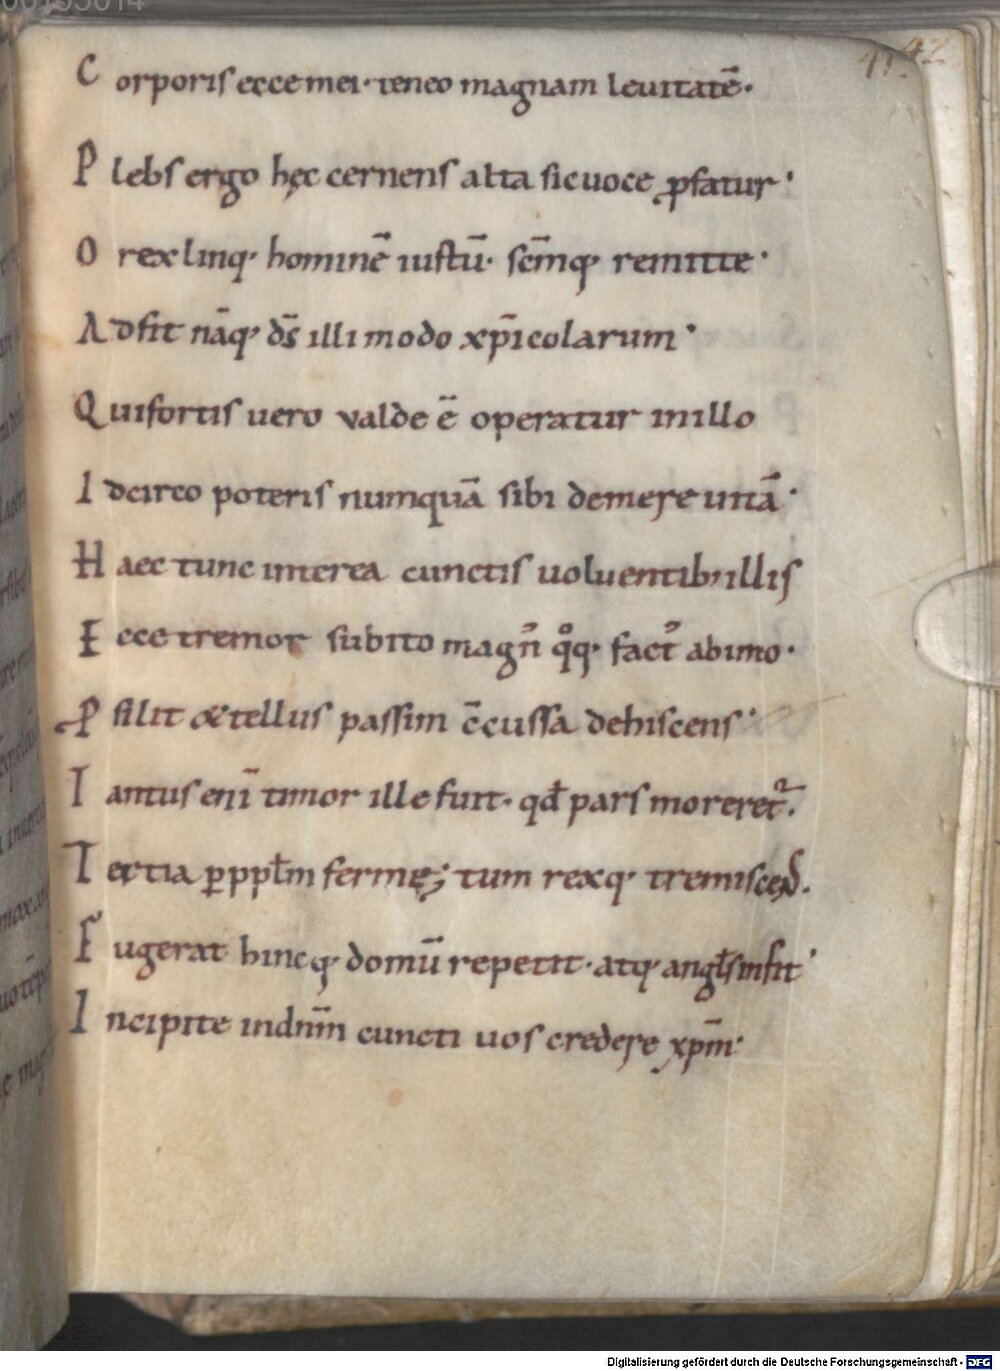 41. 42
Corporis ecce mei· teneo magnam leuitatē·
Plebs ergo hęc cernens alta sic uoce ꝓfatur·
O rex linq· hominē iustū· scm̄q· remitte·
Adsit nāq· ds̄ illi modo xp̄icolarum·
Qui fortis uero valde ē operatur in illo
Idcirco poteris numquā sibi demere uitā·
Haec tunc interea cunctis uoluentib; illis
Ecce tremor subito magn᾽ qͦq· fact᾽ ab imo·
Ꝓsilit &tellus passim c̄cussa dehiscens·
Tantus eni̅ timor ille fuit· qđ pars moreret᷑·
Tertia ꝑ ppłm fermę; tum rexq· tremiscens·
Fugerat hincq· domū repetit· atq· angłs infit·
Incipite in dnm̄ cuncti uos credere xpm̄·
Digitalisierung gefördert durch die Deutsche Forschungsgemeinschaft - DFG